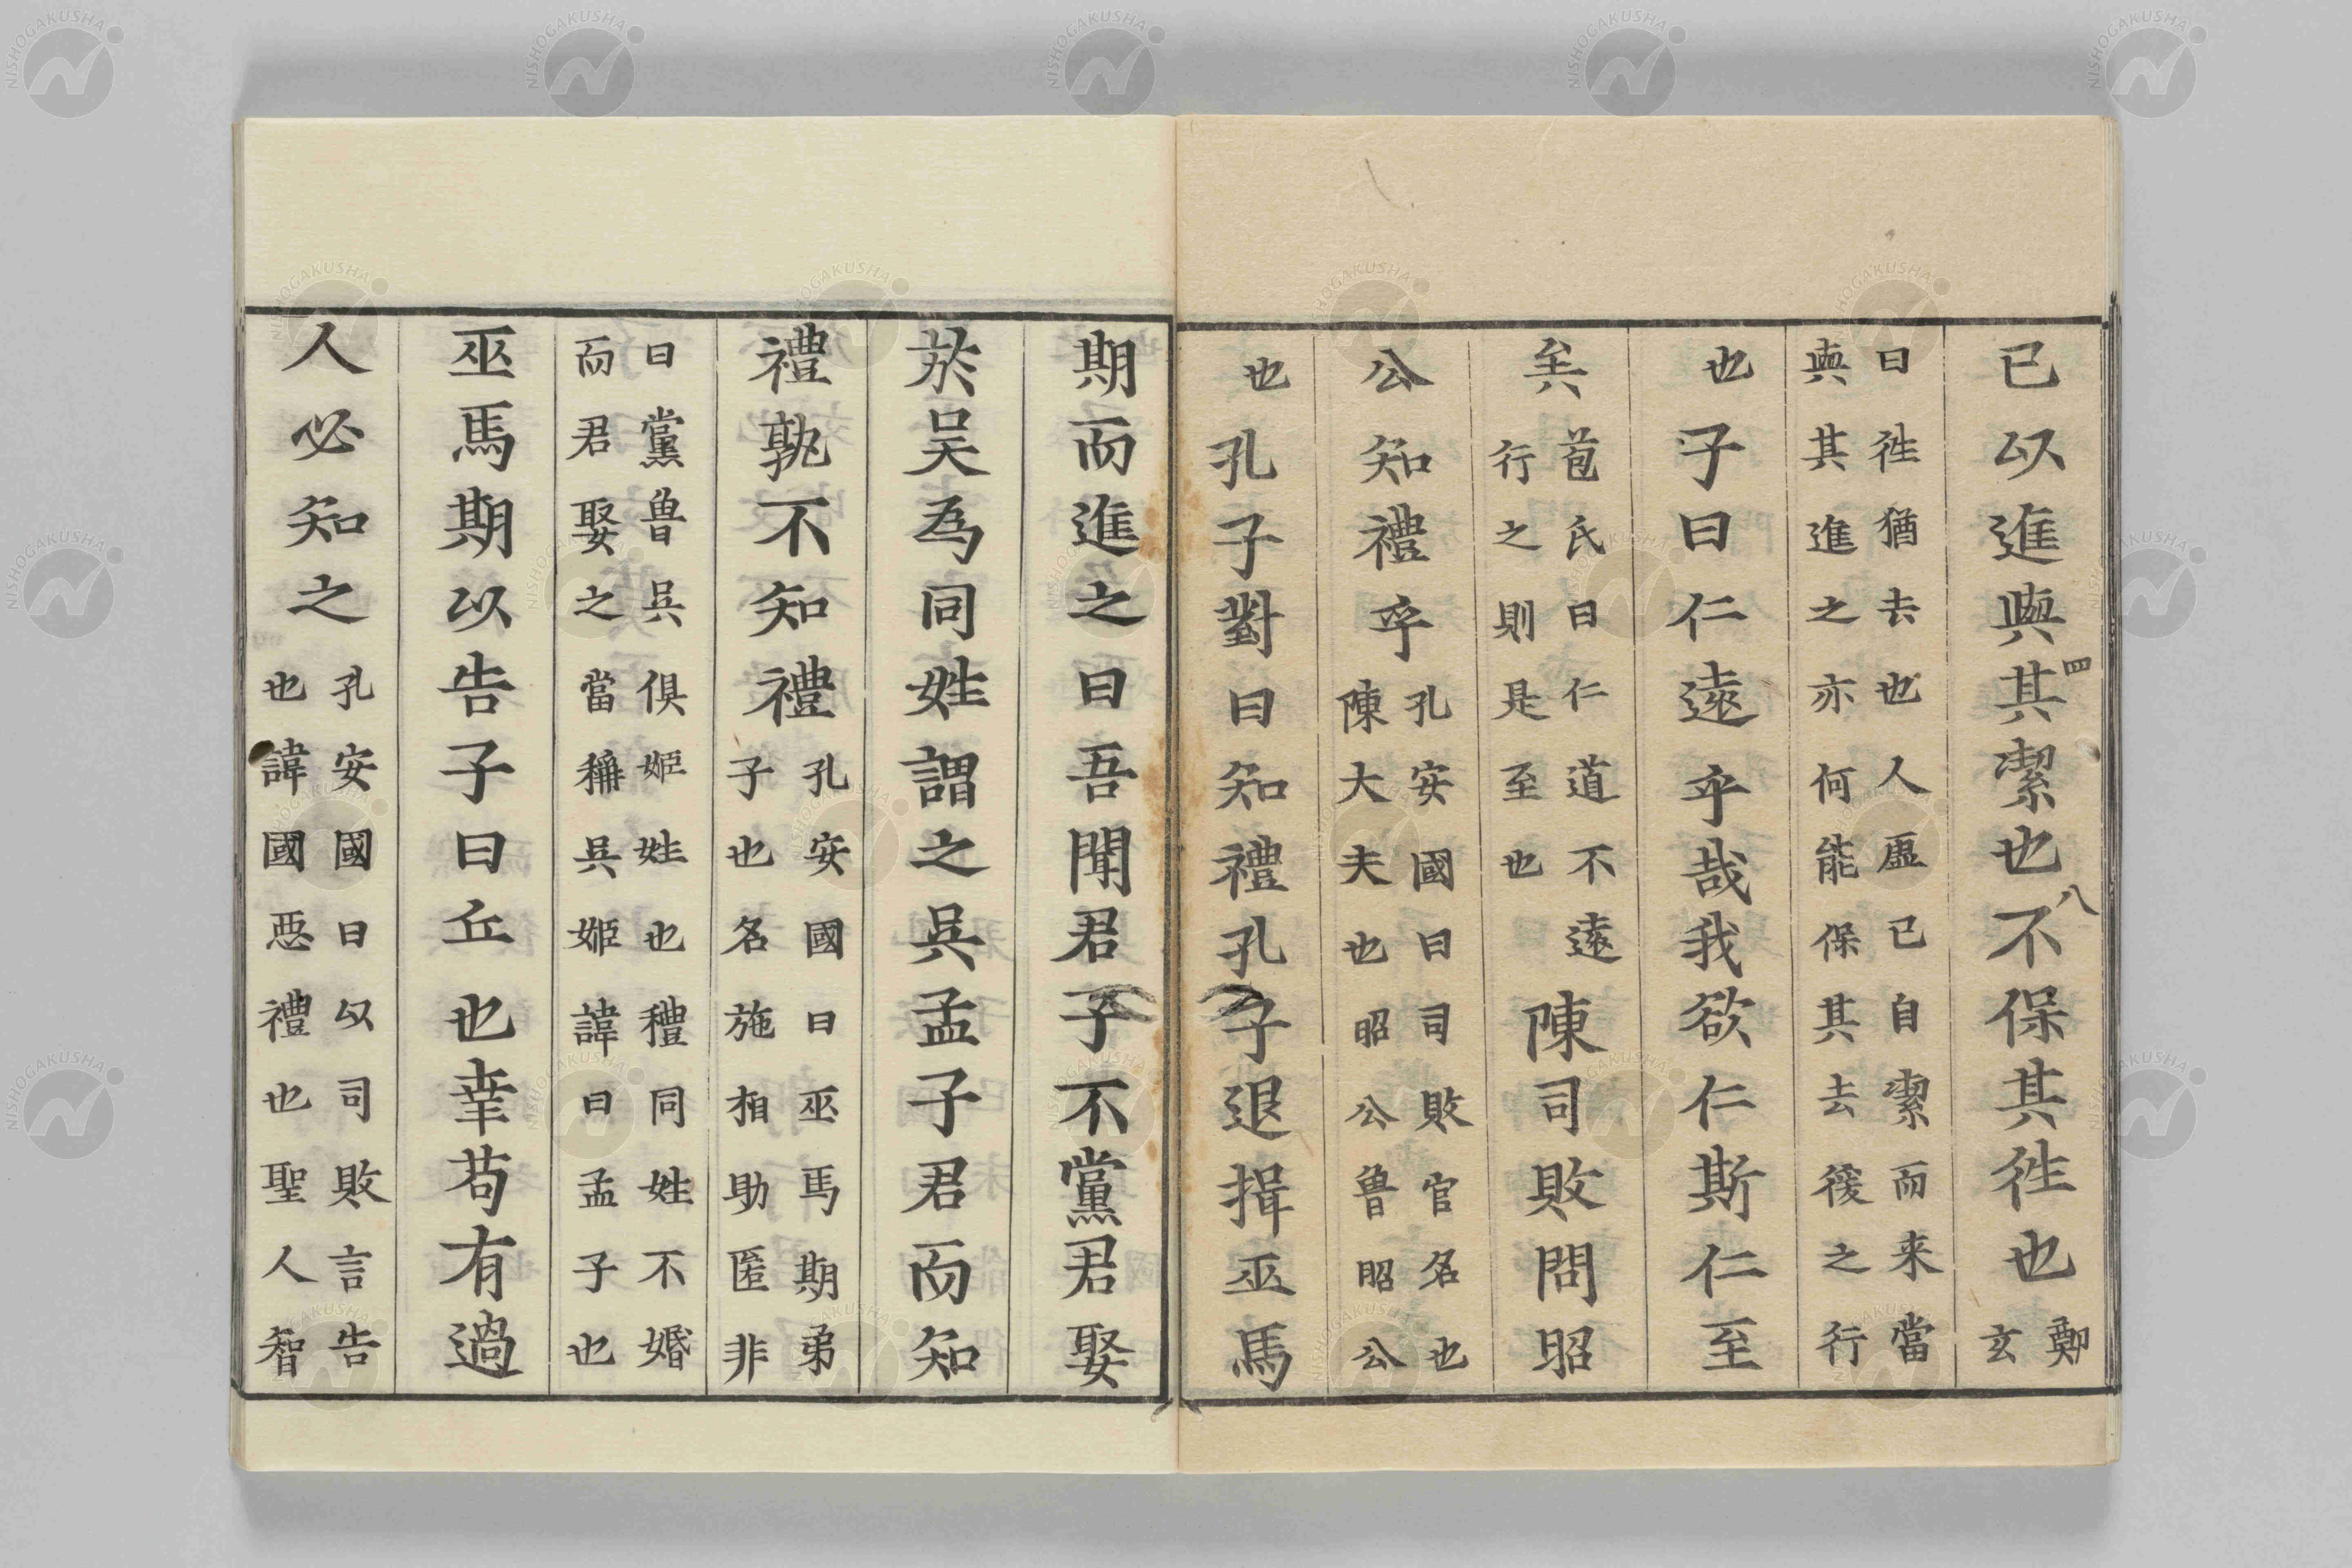 已以進與其潔也不保其徃也鄭玄
四
八
曰徃猶去也人虛已自潔而来當
與其進之亦何能保其去後之行
也子曰仁遠乎哉我欲仁斯仁至
矣苞氏曰仁道不遠行之則是至也陳司敗問昭
公知禮乎孔安國曰司敗官名也陳大夫也昭公魯昭公
也孔子對曰知禮孔子退揖巫馬
期而進之曰吾聞君子不黨君娶
於吴為同姓謂之吳孟子君而知
禮孰不知禮孔安國曰巫馬期弟子也名施相助匿非
曰黨魯吳俱姬姓也禮同姓不婚
而君娶之當稱吳姬諱曰孟子也
巫馬期以告子曰丘也幸苟有過
人必知之孔安國曰以司敗言告也諱國惡禮也聖人智
NISHOGAKUSHA